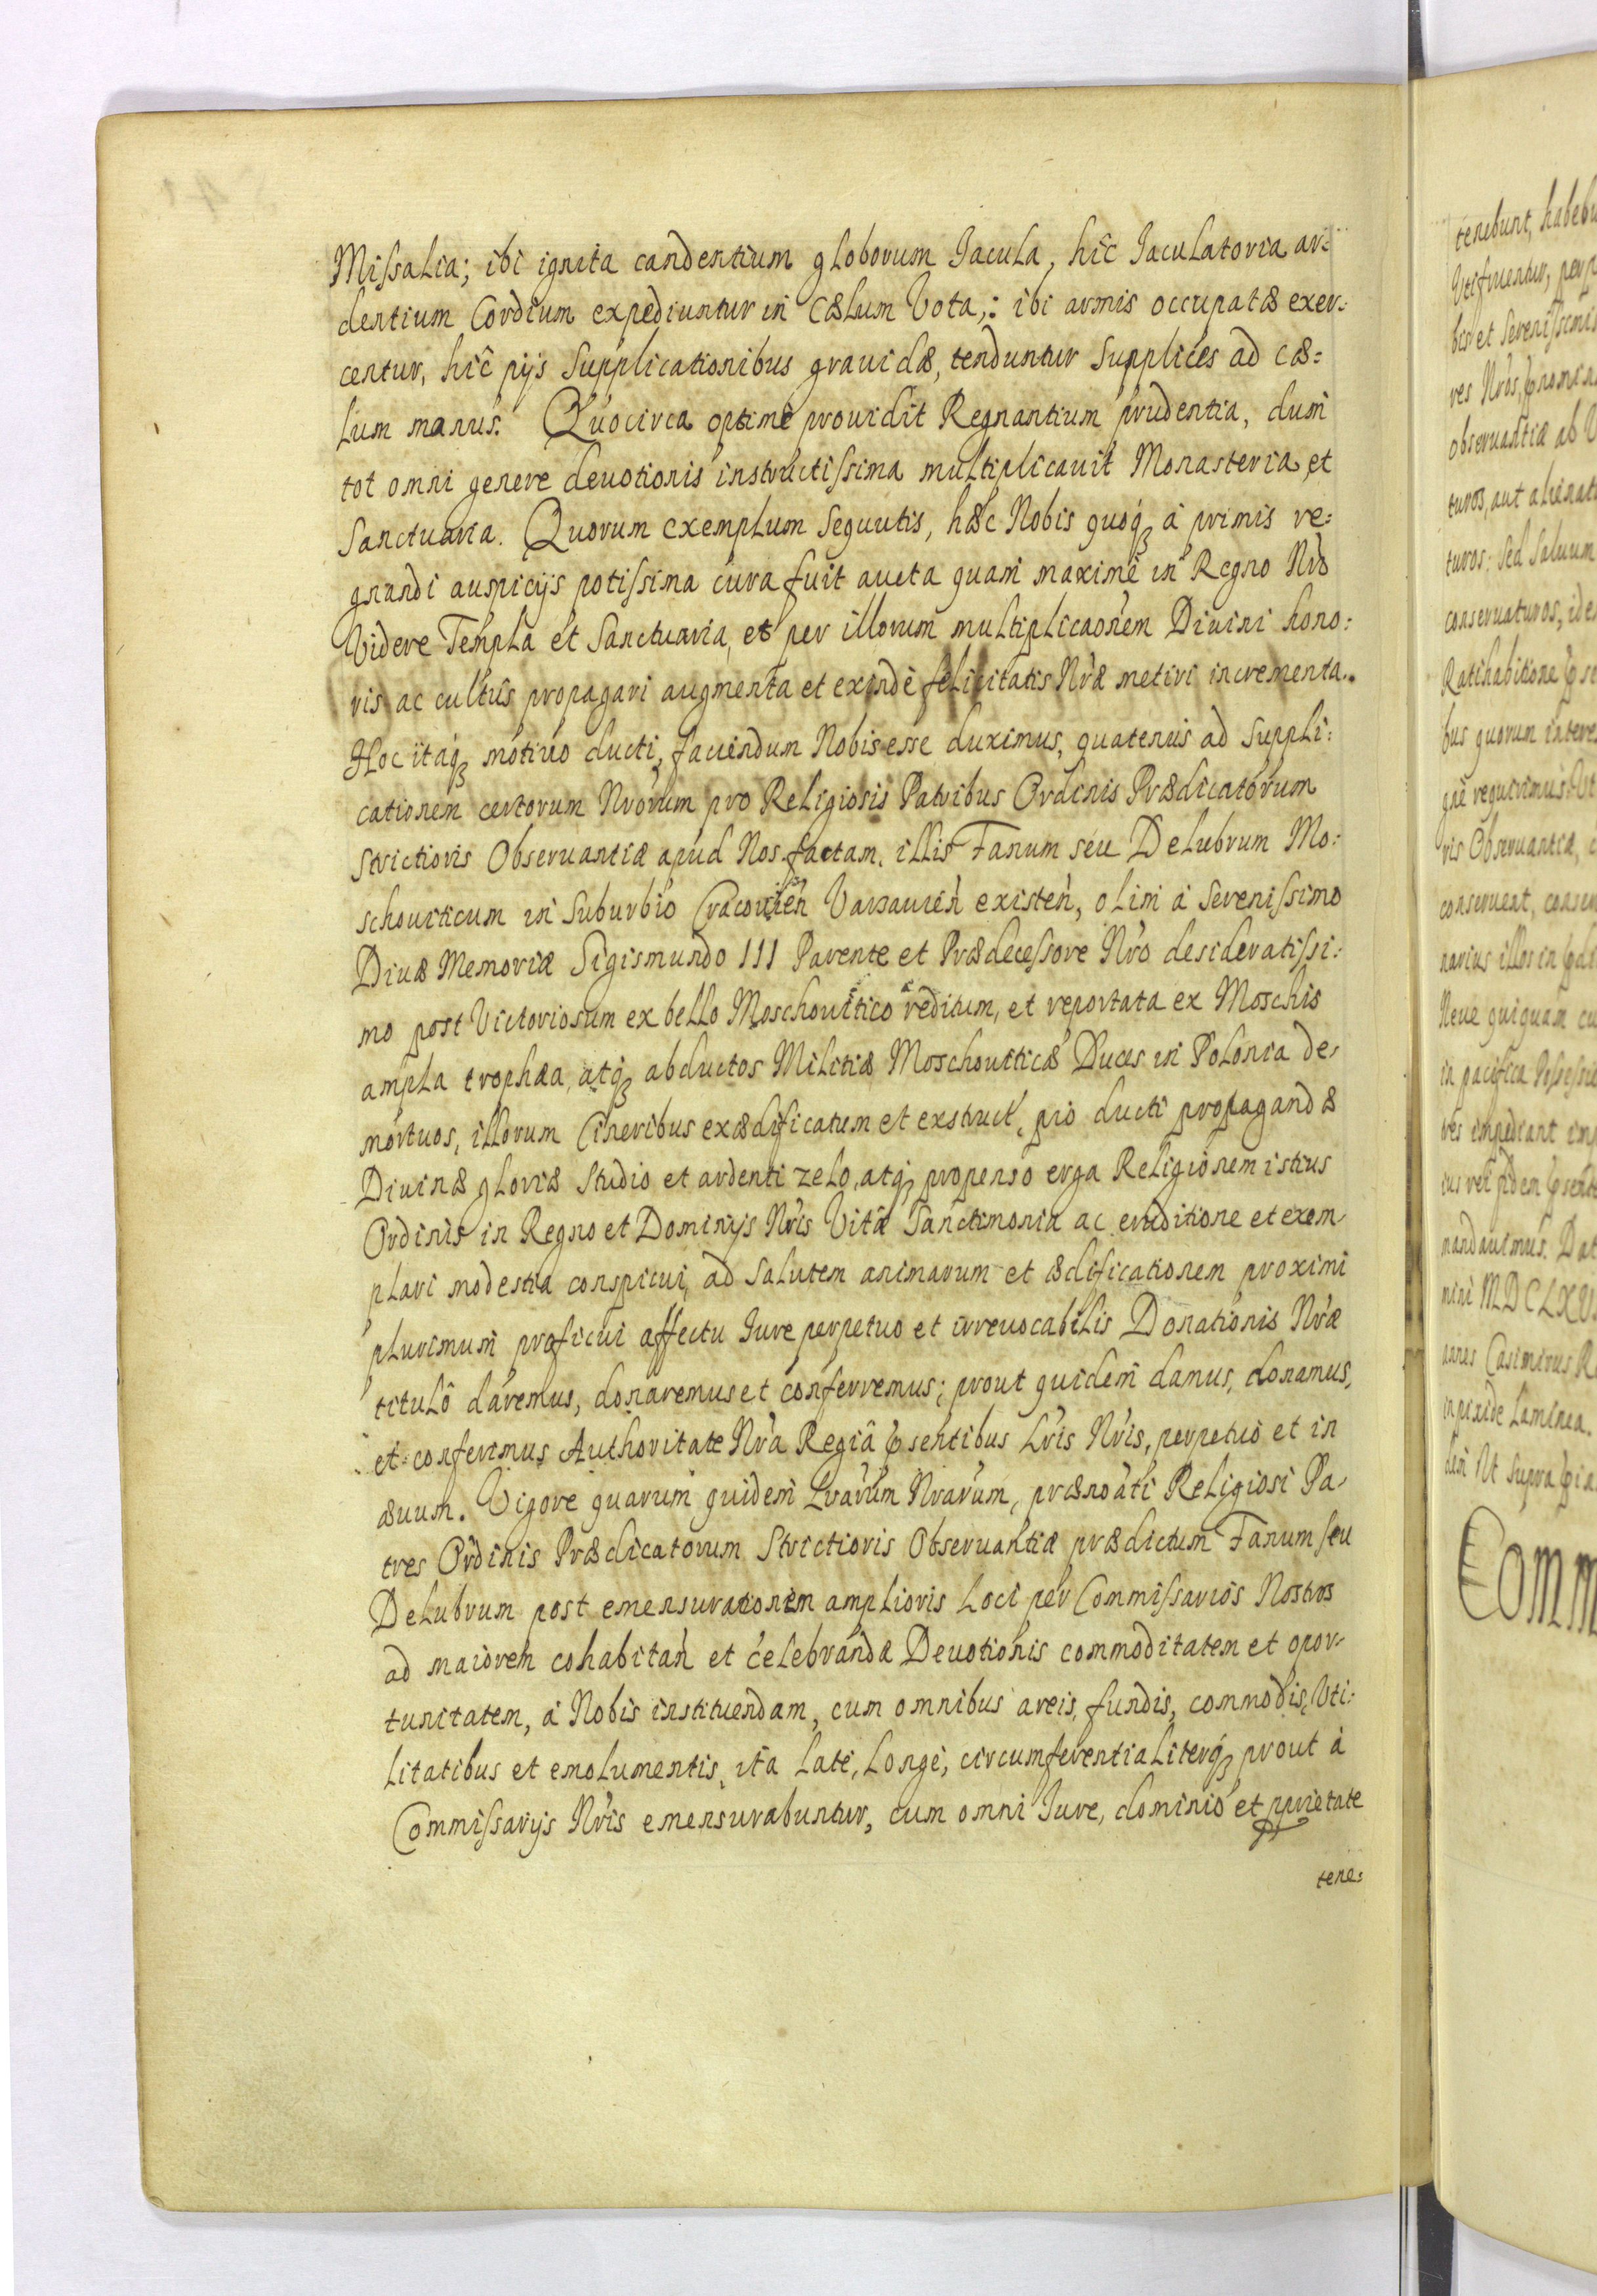 Missalia; ibi ignita candentium globorum Jacula, hîc Jaculatoria ar=
dentium Cordium expediuntur in Cælum Vota,: ibi armis occupatæ exer=
centur, hîc pijs Supplicationibus grauidæ, tenduntur Supplices ad Cæ=
lum manus. Quocirca optimè prouidit Regnantium prudentia, dum
tot omni genere deuotionis instructissima multiplicauit Monasteria, et
Sanctuaria. Quorum exemplum Seguutis, hæc Nobis quoqꝫ à primis re=
gnandi auspicijs potissima cura fuit aucta quam maximè in Regno Nr̃o
Videre Templa et Sanctuaria, et per illorum multiplicaõnem Diuini hono=
ris ac cultûs propagari augmenta et exindè felicitatis Nr̃æ metiri incrementa.
Hoc itaqꝫ motiuo ducti, faciendum Nobis esse duximus, quatenùs ad Suppli=
cationem certorum Nr̃orum pro Religiosis Patribus Ordinis Prædicatorum
Strictioris Obseruantiæ apud Nos factam, illis Fanum seu Delubrum Mo=
schouiticum in Suburbio Cracouień Varsauień existeń, olim à Serenissimo
Diuæ Memoriæ Sigismundo III Parente et Prædecessore Nr̃o desideratissi=
mo post Victoriosum ex bello Moschouitico reditum, et reportata ex Moschis
ampla trophæa, atqꝫ abductos Militiæ Moschouiticæ Duces in Polonia de=
mortuos, illorum Cineribus exædificatum et exstruct, pio ducti propagandæ
Diuinæ gloriæ Studio et ardenti zelo, atqꝫ propenso erga Religionem istius
Ordinis in Regno et Dominijs Nr̃is Vitâ Sanctimonia ac eruditione et exem=
plari modestia conspicui, ad Salutem animarum et ædificationem proximi
plurimum proficui affectu Jure perpetuo et irreuocabilis Donationis Nr̃æ
titulô daremus, donaremus et conferremus; prout quidem damus, donamus,
et conferimus Authoritate Nr̃a Regiâ p̃sentibus Lr̃is Nr̃is, perpetuò et in
æuum. Vigore quarum quidem Lr̃arum Nr̃arum, prænoãti Religiosi Pa=
tres Ordinis Prædicatorum Strictioris Obseruantiæ prædictum Fanum seu
Delubrum post emensurationem amplioris Loci per Commissarios Nostros
ad maiorem cohabitań et celebrandæ Deuotionis commoditatem et opor=
tunitatem, à Nobis instituendam, cum omnibus areis, fundis, commodis, Uti=
litatibus et emolumentis, ita latè, longè, circumferentialiterqꝫ prout à
Commissarijs Nr̃is emensurabuntur, cum omni Jure, dominio et pprietate
tene=